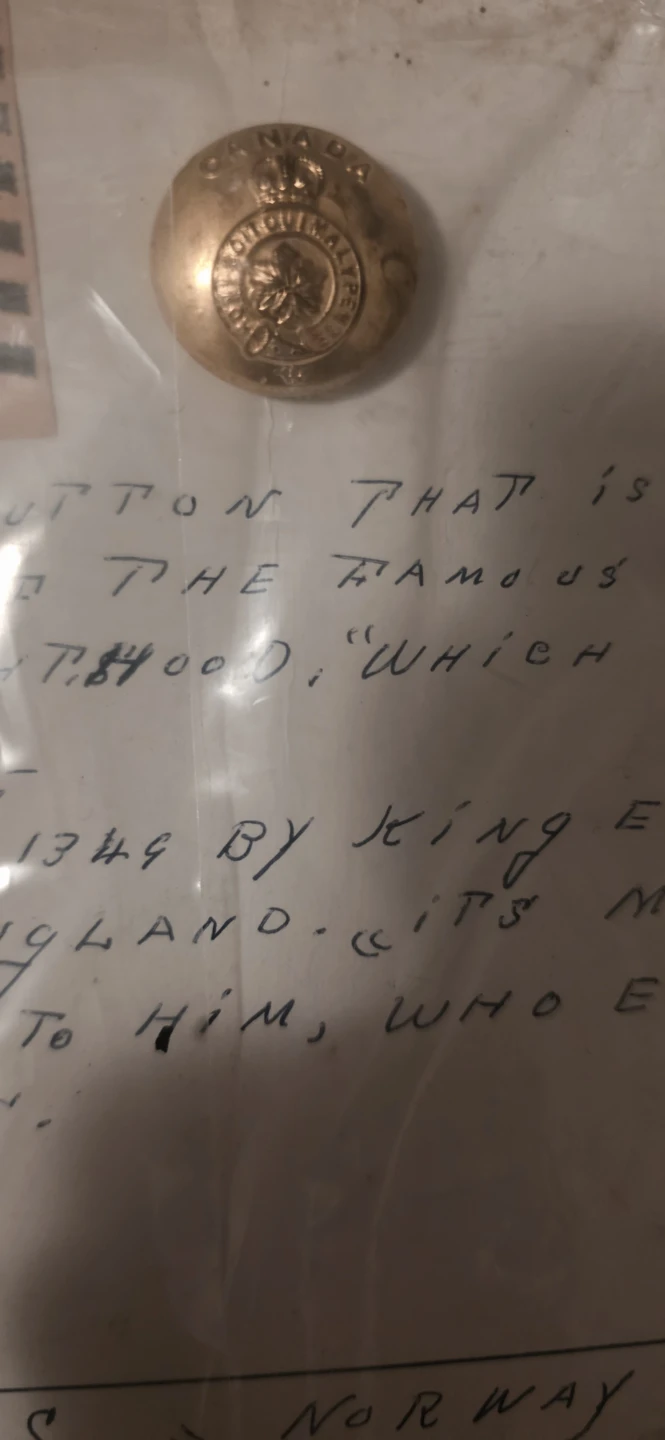 CANADA
HONI SOIT QUI MAL Y PENSE
UTTON THAT iS
THE FAMOUS
HT.HOOD, "WHiCH
1349 BY KiNg E
NgLAND. "iTS M
To HiM, WHO E
S NORWAY